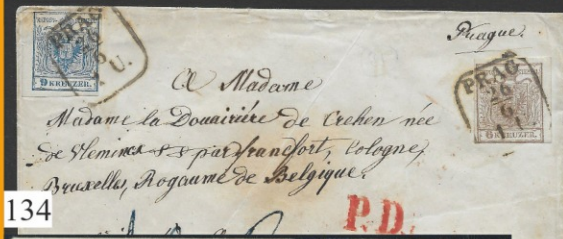 Prague.
PRAG
26
6
U.
9 KREUZER.
PRAG
26
6
6 KREUZER.
A Madame
Madame la Douairière de Crehen née
de Heminck par francfort, Cologne,
Bruxelles, Rogaume de Belgique.
P.D.
134